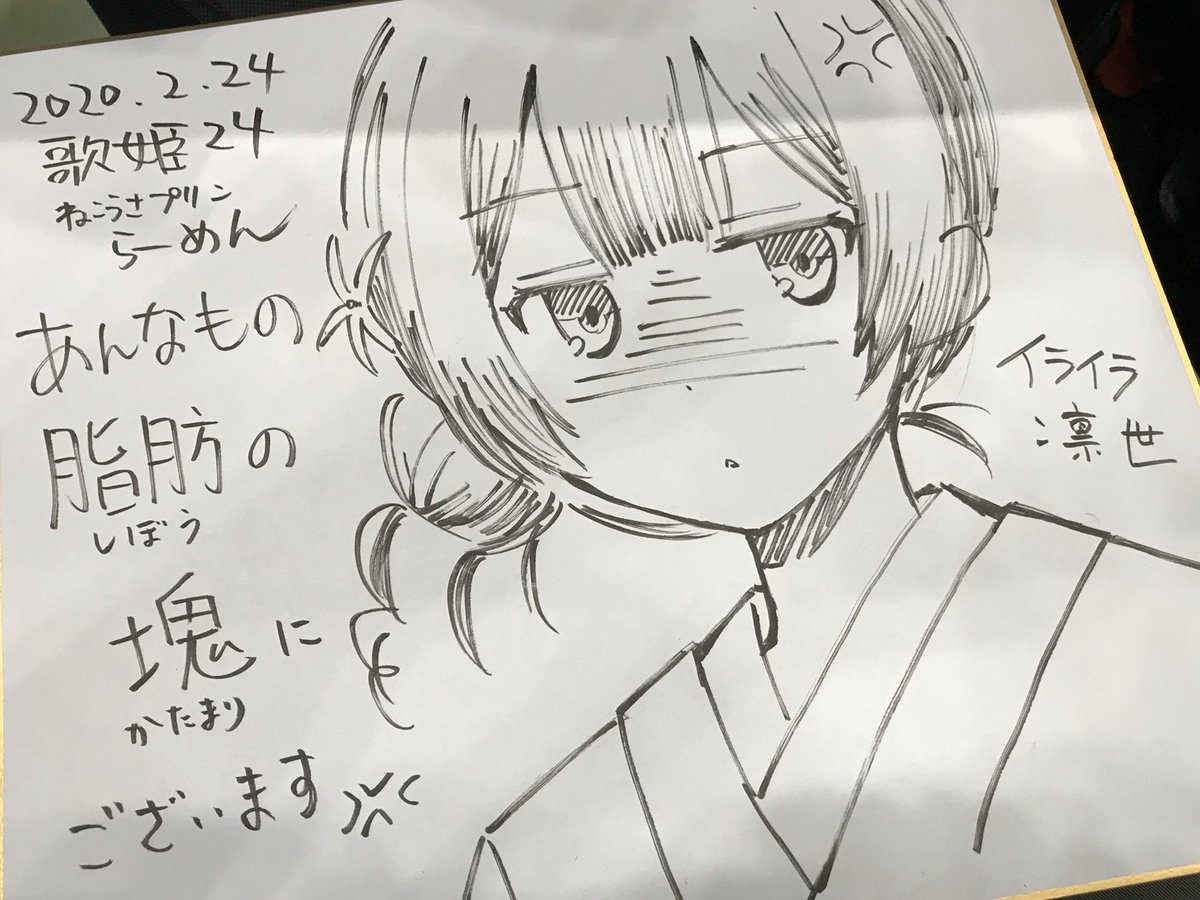 2020.2.24
歌姫24
ねこうさプリン
らーめん
あんなもの
脂肪の
しぼう
塊に
かたまり
ございます
イライラ
凛世